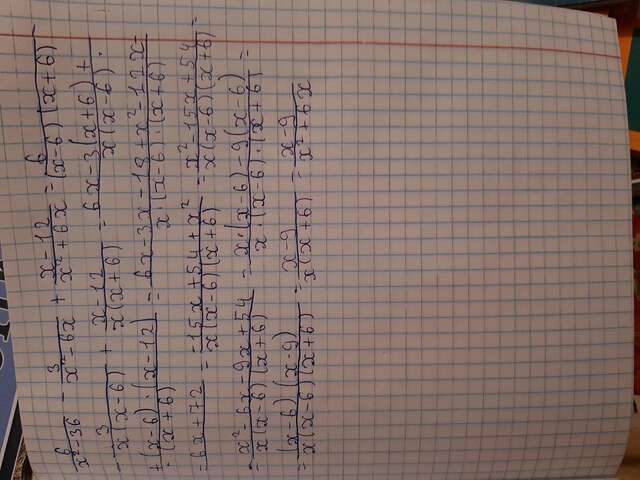 6/(x²-36) - 3/(x²-6x) + (x-12)/(x²+6x) = 6/((x-6)(x+6))
- 3/(x(x-6)) + (x-12)/(x(x+6)) = (6x-3(x+6)+)/(x(x-6)·)
(+(x-6)·(x-12))/(·(x+6)) = (6x-3x-18+x²-12x-)/(x·(x-6)·(x+6))
= 6x+72 = (-15x+54+x²)/(x(x-6)(x+6)) = (x²-15x+54)/(x(x-6)(x+6)) =
= (x²-6x-9x+54)/(x(x-6)(x+6)) = (x·(x-6)-9(x-6))/(x·(x-6)·(x+6)) =
= ((x-6)(x-9))/(x(x-6)(x+6)) = (x-9)/(x(x+6)) = (x-9)/(x²+6x)